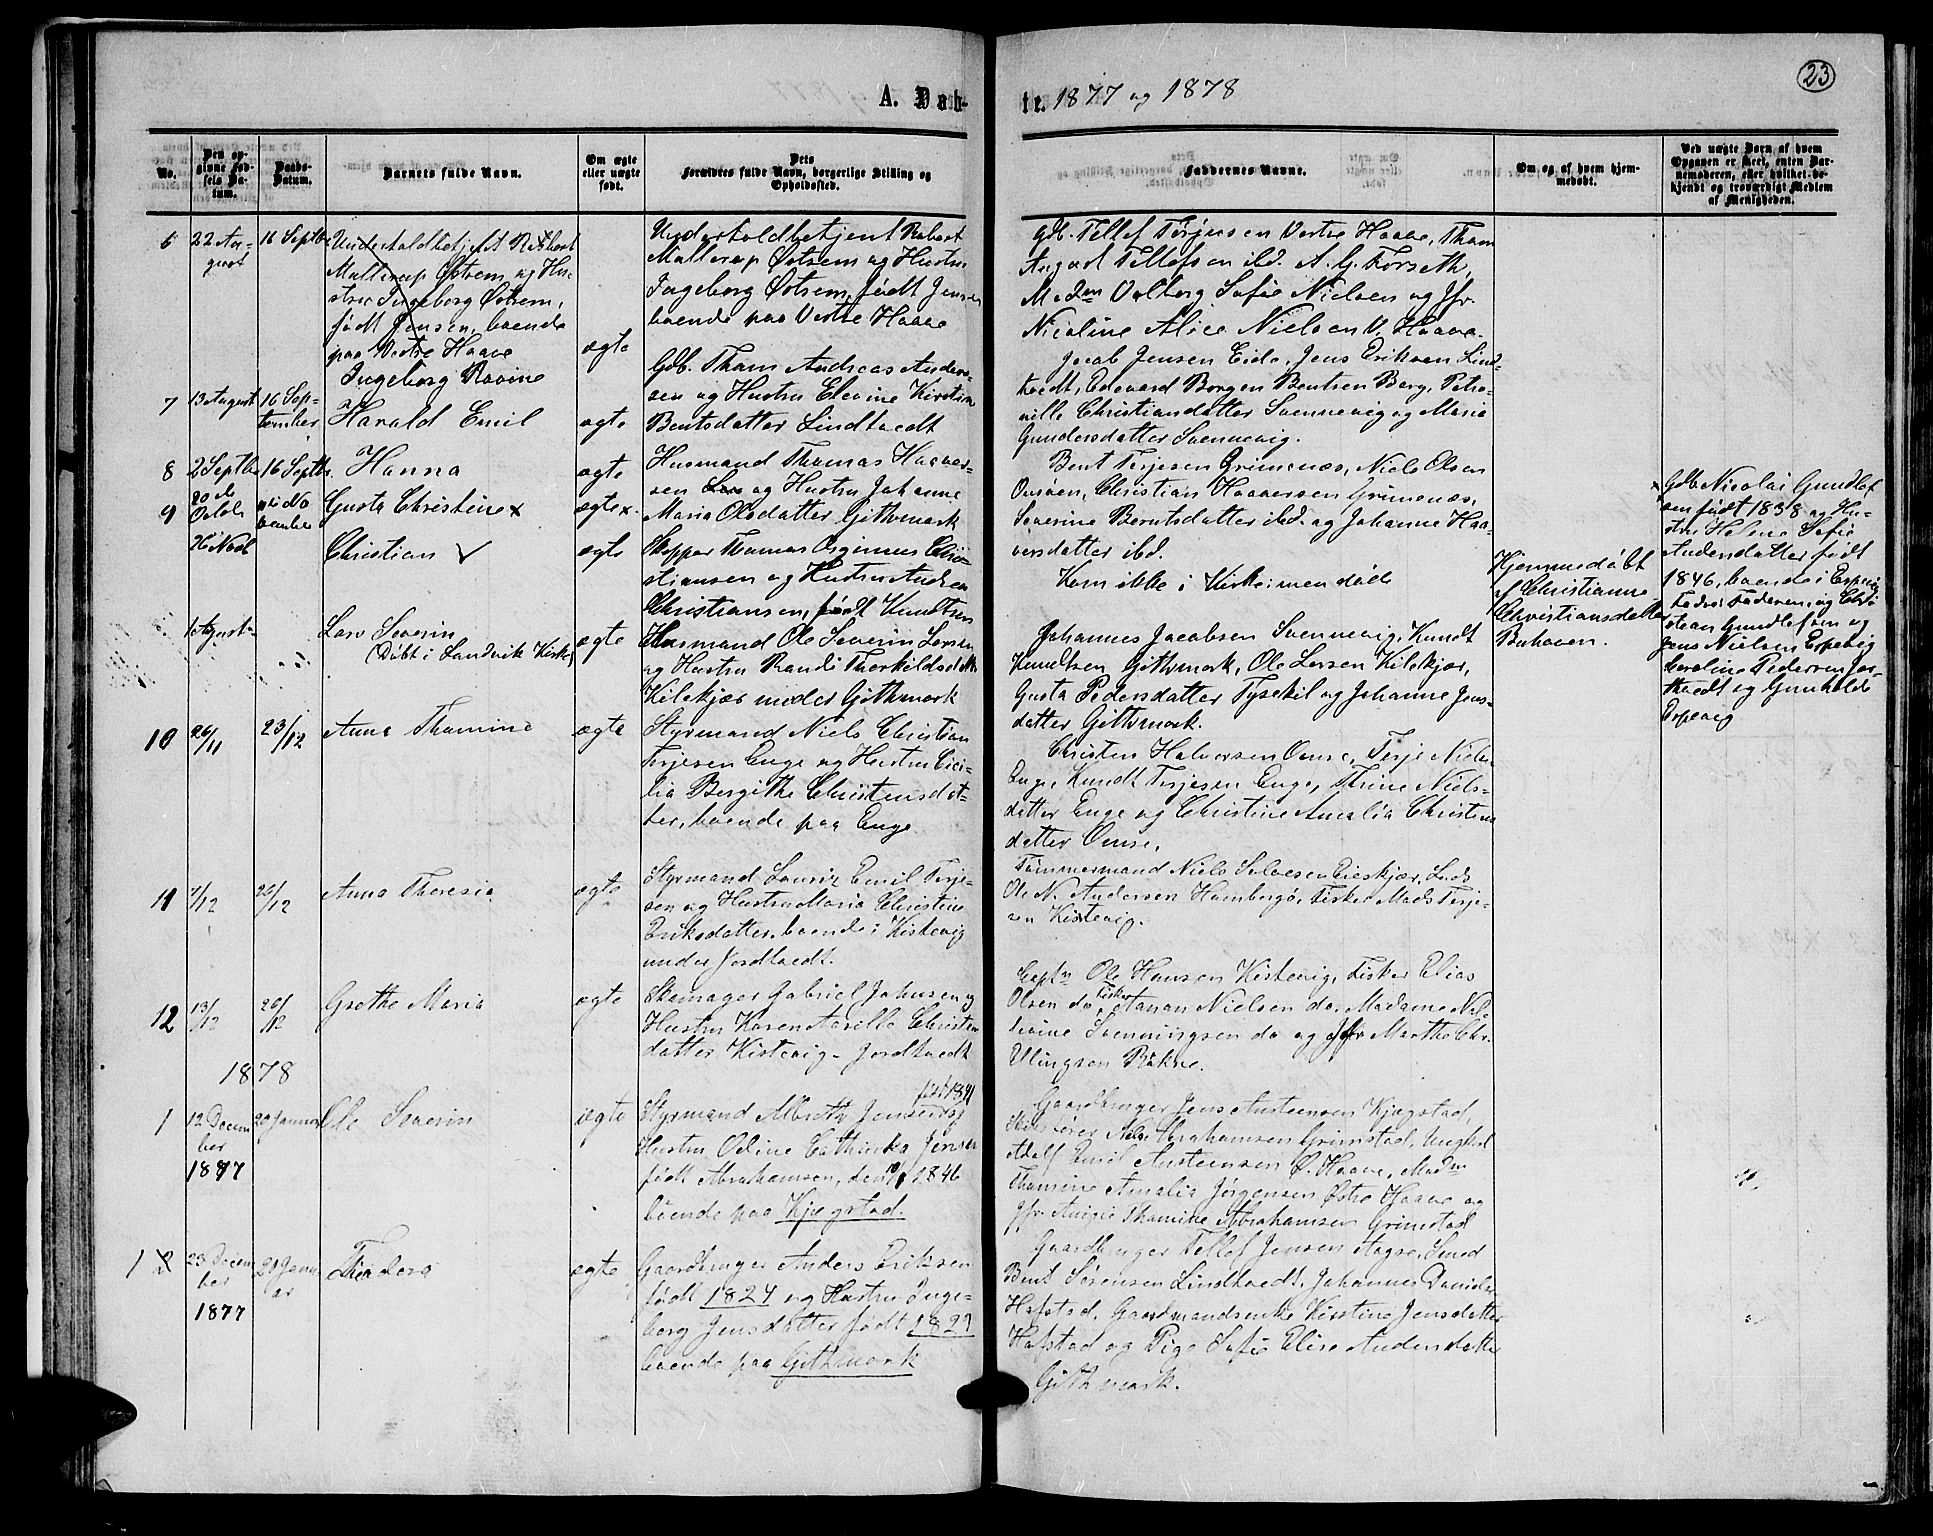 23
A. Dåb-
te. 1877 og 1878
No.
Den op-
givne Fød-
sels Da-
tum.
Daabs-
Datum.
Barnets fulde Navn.
Om ægte
eller uægte
født.
Dets
Forældres fulde Navn, borgerlige Stilling og
Opholdssted.
Faddernes Navne.
Om og af hvem hjem-
medøbt.
Ved uægte Barn af hvem
Opgaven er skeet, enten Bar-
nemoderen, eller hvilket be-
kjendt og troværdigt Medlem
af Menigheden.
6
22 Au-
gust
16 Septbr
Ingeborg Ravine
ægte
Undertoldbetjent Robert
Malterup Østrem og Hustru
Ingeborg Østrem, født Jensen
boende paa Vestre Haave
Gdb. Tellef Terjesen Vestre Haave, Tham
August Tellefsen ibd. A. G. Forseth,
Valborg Sofie Nielsen og Jfr.
Nicoline Alice Nielsen V. Haave.
7
13 August
16 Sep-
tember
Harald Emil
ægte
Gdb. Tham Andreas Anders-
sen og Hustru Elevine Kirstine
Bentsdatter Lindtvedt
Jacob Jensen Eide, Jens Eriksen Lind-
tvedt, Edevard Borgen Bentsen Berg, Petro-
nille Christiansdatter Svennevig og Maria
Gundersdatter Svennevig.
8
2 Septbr
16 Septbr.
Hanna
ægte
Husmand Thomas Haaver-
sen og Hustru Johanne
Maria Olsdatter Githmark
Bent Terjesen Grimenæs, Niels Olsen
Christian Haaversen Grimenæs,
Severine Berntsdatter ibd. og Johanne Haa-
versdatter ibd.
9
Gusta Christine x
ægte x.
x Gdb. Nicolai Gundlef
sen født 1838 og Hu-
stru Helene Sofie
Andersdatter født
1846, boende i Espevig
Faderen, og Chri
stian Gundlefsen og
Jens Nielsen Espevig
Caroline Pedersen
og Gunhilde
Espevig
Christian
ægte
Skipper Thomas Chri-
stiansen og Hustru Andrea
Christiansen, født Knudtsen
Kom ikke i Kirke; men døde
Hjemmedøbt
af Christianne
Christiansdatter
Buhaven.
1 August
Lars Severin
(Døbt i Landvik Kirke)
ægte
Husmand Ole Severin Larsen
og Hustru Randi Thorkildsdatter
Kilekjær under Githmark
Johannes Jacobsen Svennevig, Knudt
Knudtsen Githmark, Ole Larsen Kilekjær,
Gusta Pedersdatter Tysekil og Johanne Jens-
datter Githmark.
10
26/11
23/12
Anna Thomine
ægte
Styrmand Niels Christian
Terjesen Enge og Hustru Ceci-
lia Bergithe Christensdat-
ter, boende paa Enge
Christen Halvorsen Omre, Terje Nielsen
Enge, Knudt Terjesen Enge, Thrine Niels-
datter Enge og Christine Amalia Christens
datter Omre.
11
7/12
26/12
Anna Theresia
ægte
Styrmand Lauriz Emil Terje-
sen og Hustru Maria Christine
Eriksdatter, boende i Kistevig
under Jordtvedt.
Tømmermand Niels
Ole N. Andersen Homborgø, Fisker Mads Terje-
sen Kistevig.
12
13/12
26/12
Grethe Maria
ægte
Skomager Gabriel Johnsen og
Hustru Karen Aasille Christens
datter Kistevig - Jordtvedt
Captn Ole Hansen Kistevig, Fisker Elias
Olsen do, Fisker Aanon Nielsen do, Madame
Svenningsen do og Jfr Marthe Chr.
Ellingsen
1878
1
12 Decem
ber
1877
20 Januar
Ole Severin
ægte
Styrmand Albreth Jensen og
Hustru Odine Cathinka Jensen
født Abrahamsen, 1846
boende paa Kjægstad.
Gaardbruger Jens Austensen Kjægstad,
Abrahamsen Grimstad, Ungkarl
Adolf Emil Austensen Ø. Haave, Madm
Thomine Amalia Jørgensen Østre Haave og
Jfr Thomine Abrahamsen Grimstad
2
23 Decem
ber
1877
20 Janu
ar
Theodora
ægte
Gaardbruger Anders Eriksen
født 1824 og Hustru Inge-
borg Jensdatter født
boende paa Githmark
Gaardbruger Tellef Jensen Aagre, Smed
Bent Sørensen Lindtvedt, Johannes Danielsen
Hafstad, Gaardmandsenke Kirstine Jensdatter
Hafstad og Pige Sofie Elise Andersdatter
Githmark.